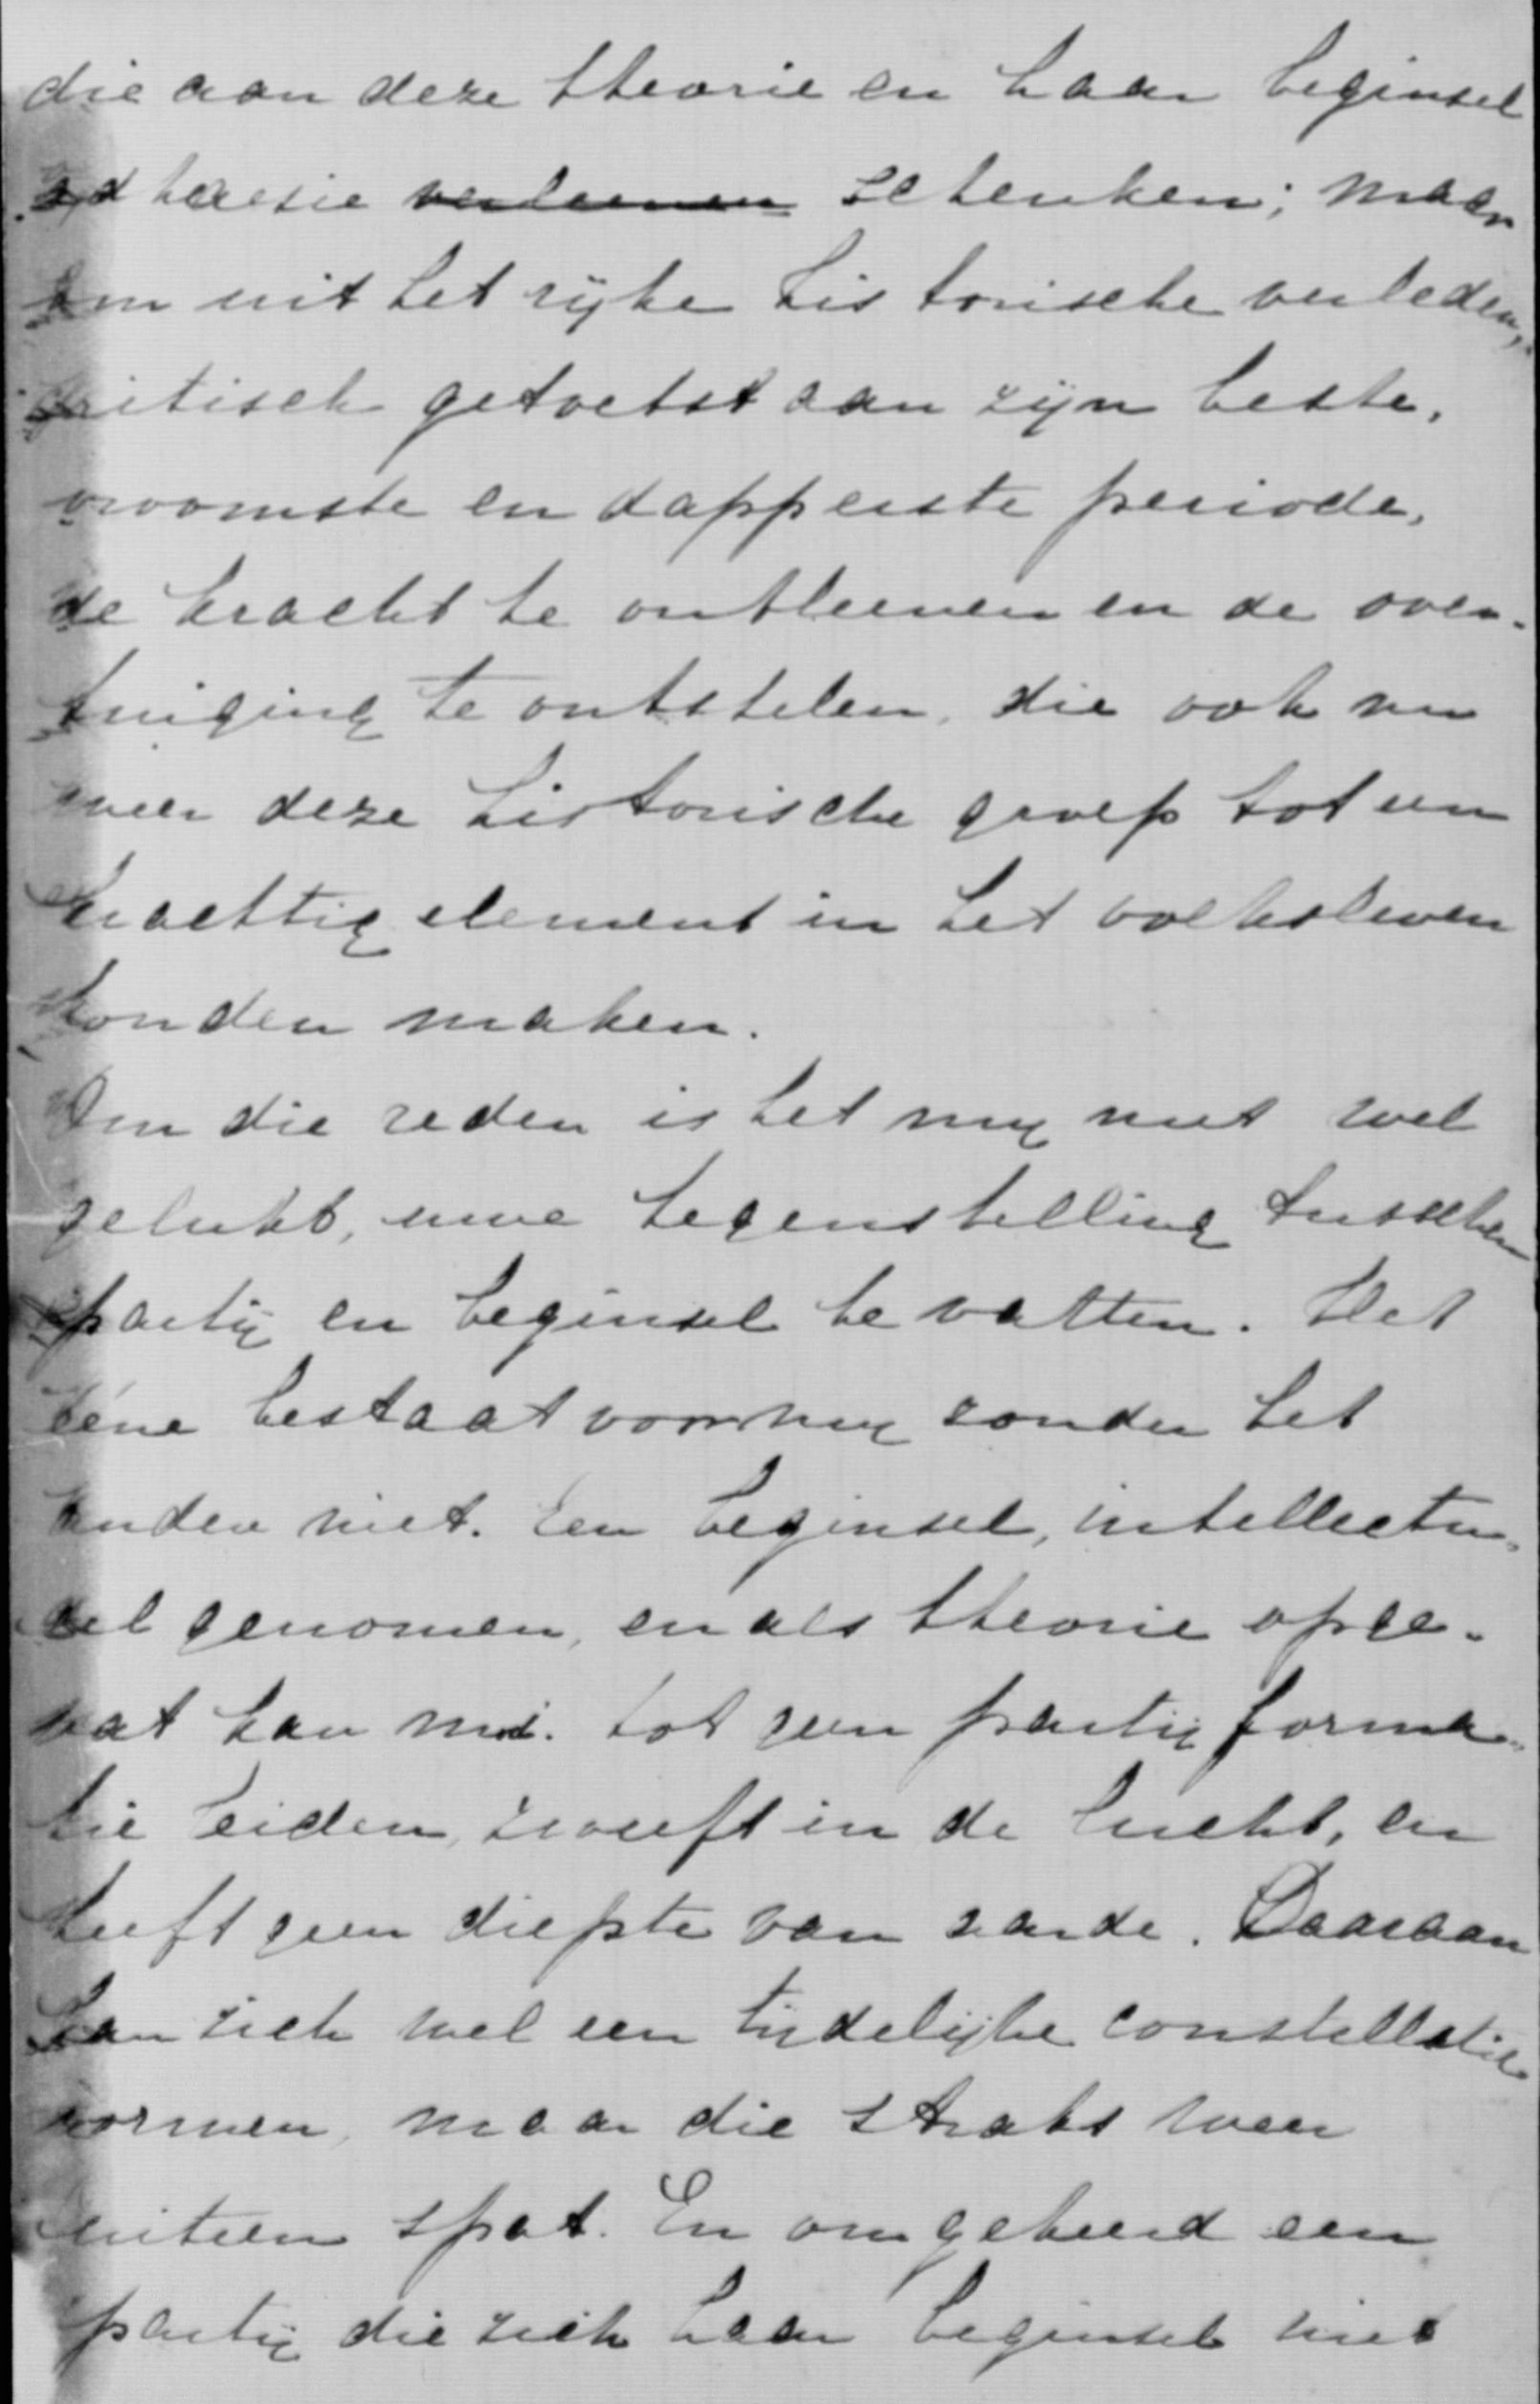 die aan deze theorie en haar beginsel
adhaesie verleenen schenken; maar
om uit het rijke historische verleden,
critisch getoetst aan zijn beste,
vroomste en dapperste periode,
de kracht te ontleenen en de over-
tuiging te ontstelen, die ook nu
weer deze historische groep tot een
krachtig element in het volksleven
konden maken.
Om die reden is het mij niet wel
gelukt, uwe tegenstelling tusschen
partij en beginsel te vatten. Het
ééne bestaat voor mij zonder het
andere niet. Een beginsel, intellectu-
eel genomen, en als theorie opge-
vat kan m.i. tot geen partijforma-
tie leiden, zweeft in de lucht, en
heeft geen diepte van aarde. Daaraan
kan zich wel een tijdelijke constellatie
vormen, maar die straks weer
uiteen spat. En omgekeerd een
partij die zich haar beginsel niet